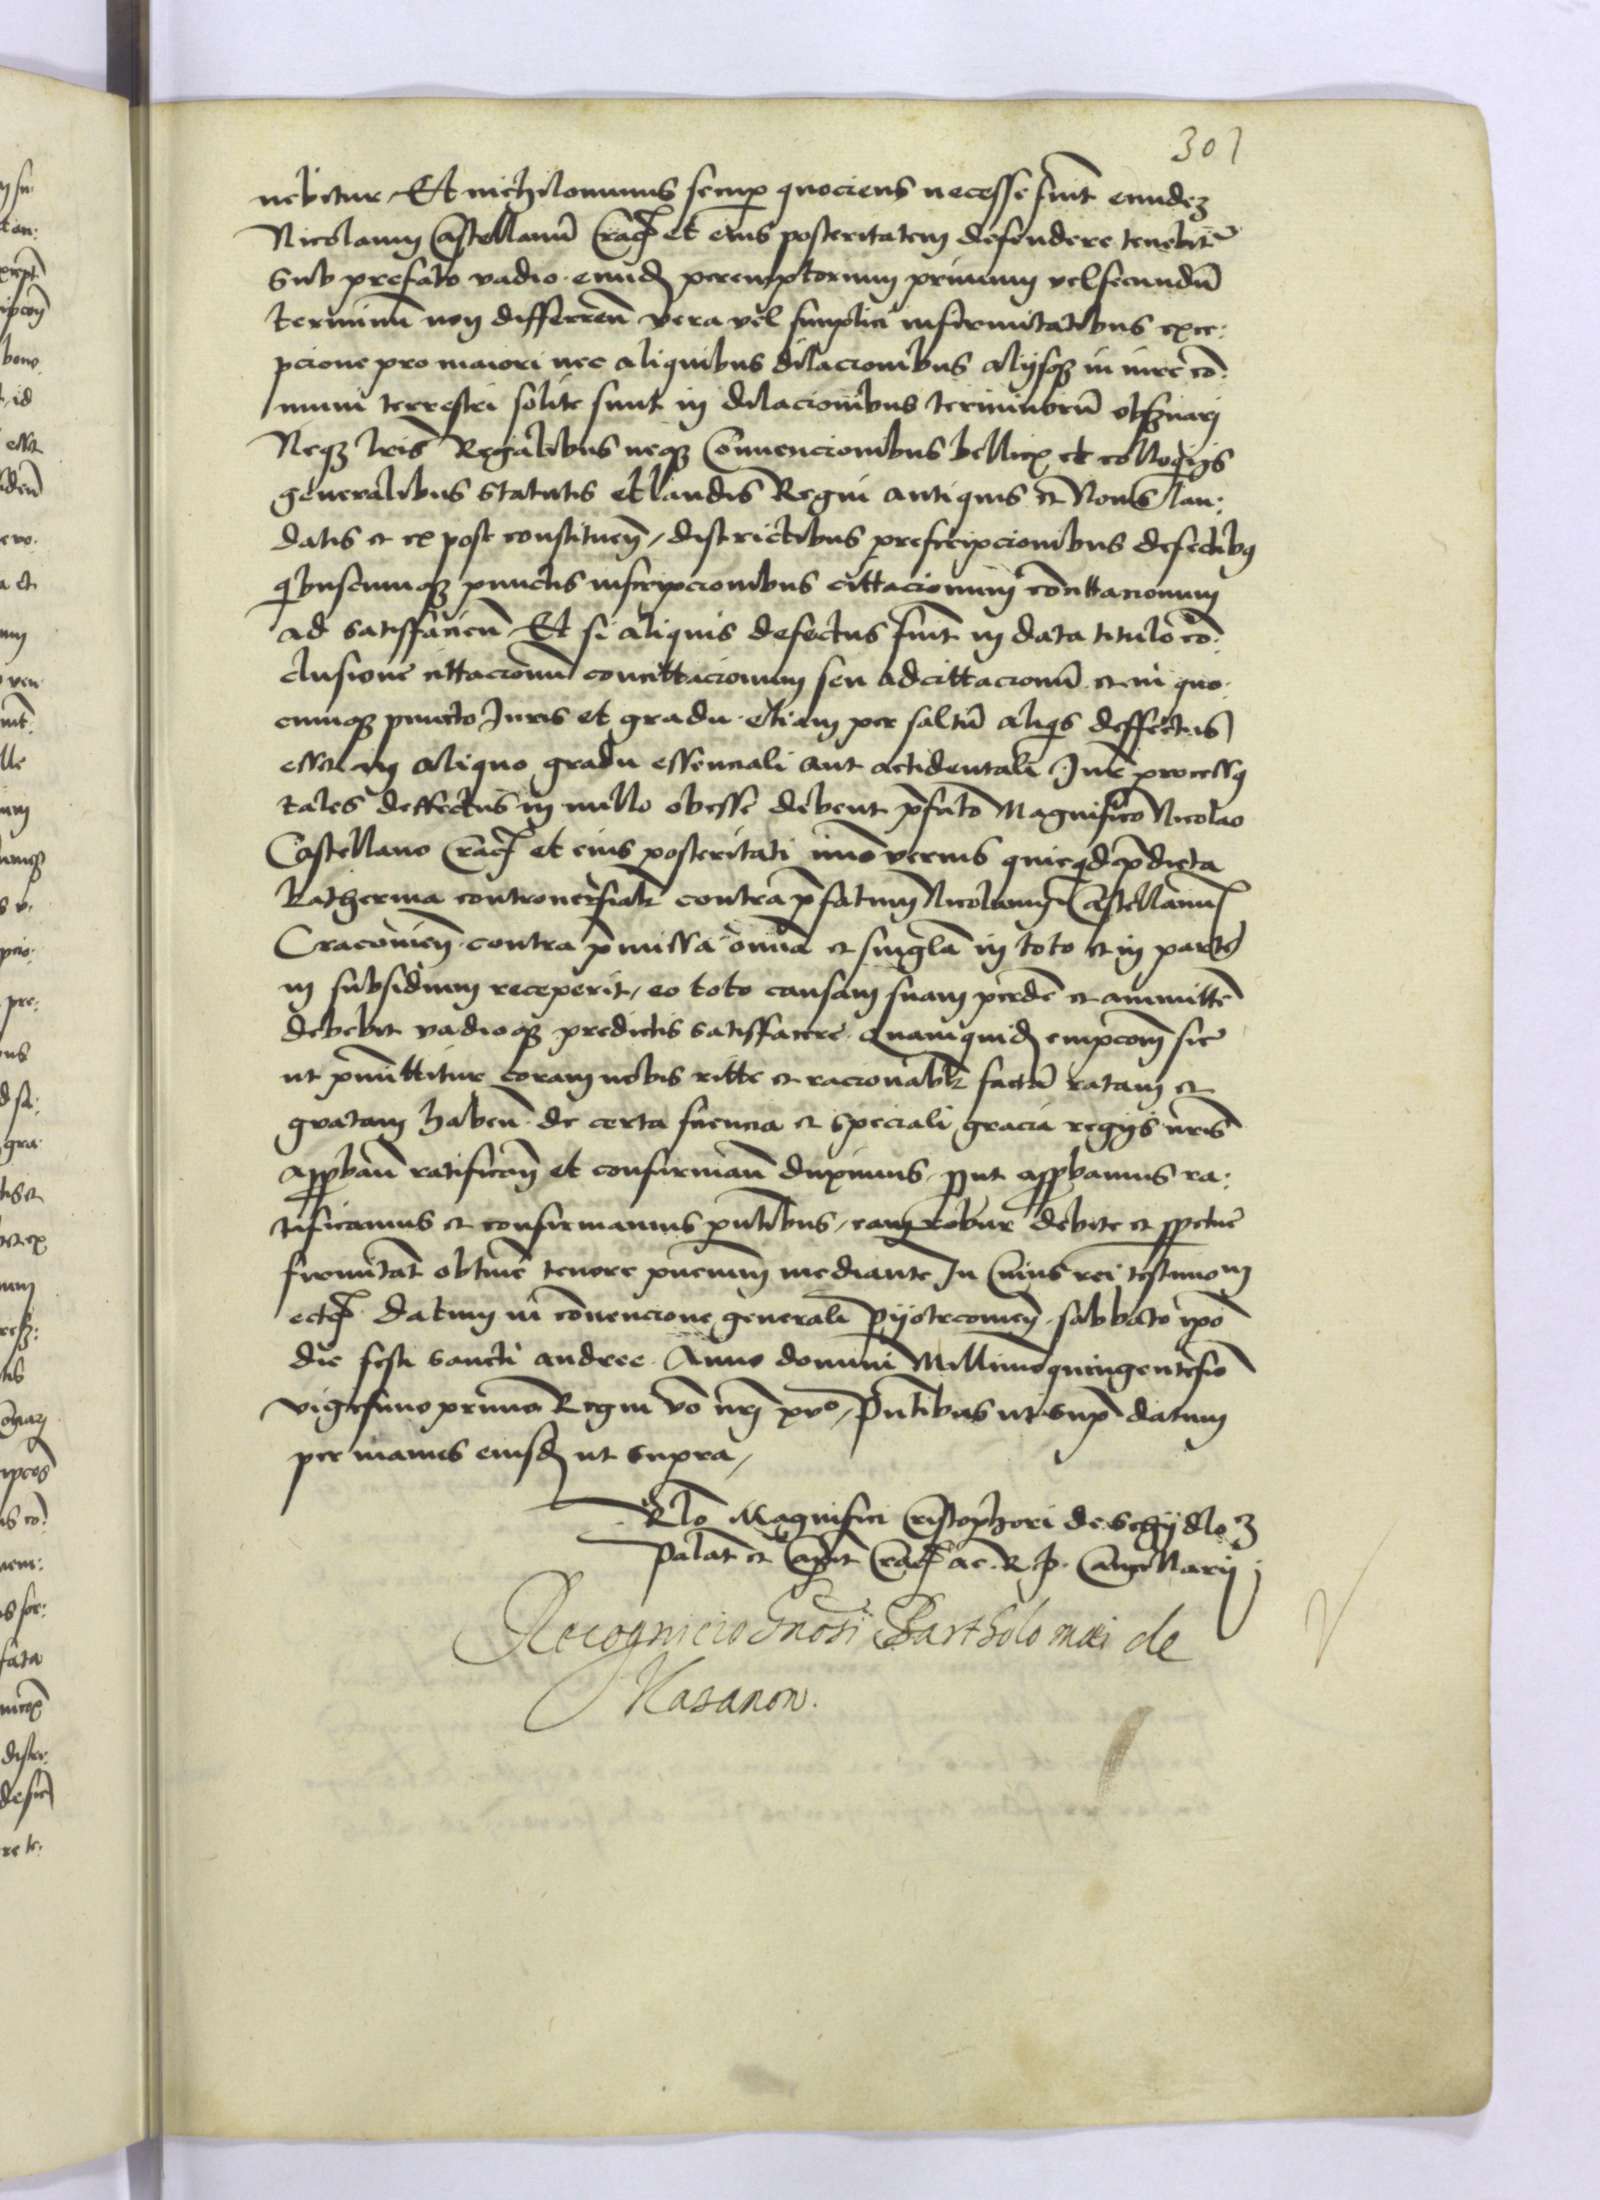 301
nebitur Et nichilominus semp quociens necesse fuit eundez
Nicolaum Castellanu Crac et eius posteritatem defendere tenebit
Sub prefato vadio eund peremptorium primum vel secundu
terminu non differren vera vel simplici infirmitatibus exce:
pcione pro maiori nec aliquibus dilacionibus alijsq in iure co:
muni terrestri solite sunt in dilacionibus terminoru obsuari
Neq lris Regalibus neq Convencionibus bellicꝭ et colloqijs
generalibus statutis et laudis Regni antiquis et Nouis lau:
datis et ex post constituen, districtibus prescripcionibus defectibus
qbuscumq punctis inscripcionibus cittacionum concittacionum
ad satisfacien Et si aliquis defectus fuit in data titulo co:
clusione cittacionu concittacionum seu adcittacionu et in quo:
cumq puncto Juris et gradu etiam per saltu aliqs deffectus
esset in aliquo gradu essenciali aut actidentali Jure processus
tales deffectus in nullo obesse debent pfato Magnifico Nicolao
Castellano Crac et eius posteritati imo verius quicqd pdicta
Katherina controuersiali contra pfatum Nicolaum Castellanu
Cracouien contra pmissa omia et singla in toto et in parte
in subsidium receperit, eo toto causam suam perde et ammitte
debebit vadioq predictis satisffacere Quamquid empcom sic
ut pmittitur coram nobis ritte et racionabli facta ratam et
gratam haben de certa sciencia et speciali gracia regijs nris
approban ratifican et confirman duximus put approbamus ra:
tificamus et confirmamus pntibus, eam robur debite et ppetue
firmitat obtine tenore pncium mediante In Cuius rei testimonium
ect Datum in convencione generali Pijotrcouien sabbato ipo
die festi sancti andree Anno domini Millimoquingentesimo
vigesimo primo Regni vo nri xvo, Pntibus ut sup datum
per manus eiusd ut supra,
Rlo Magnifici Cristophori de Schijdlo
Palat et Capit Crac ac R. P. Cancellarij
Recognicio Gnosi Bartholomaei de
Kazanow.